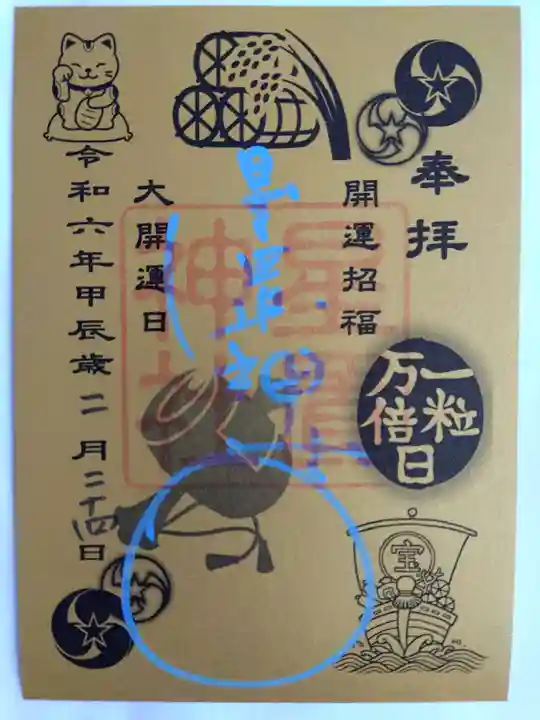 奉拝
一粒
万倍
日
開運招福
星置
神社
大開運日
令和六年甲辰歳二月二十四日
宝